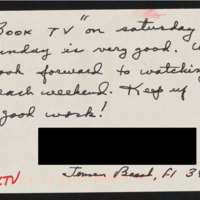 Book TV" on saturday
unday is very good. W
ook forward to watchin
each weekend. Keep up
good work!
Beach, Fl 3
TV